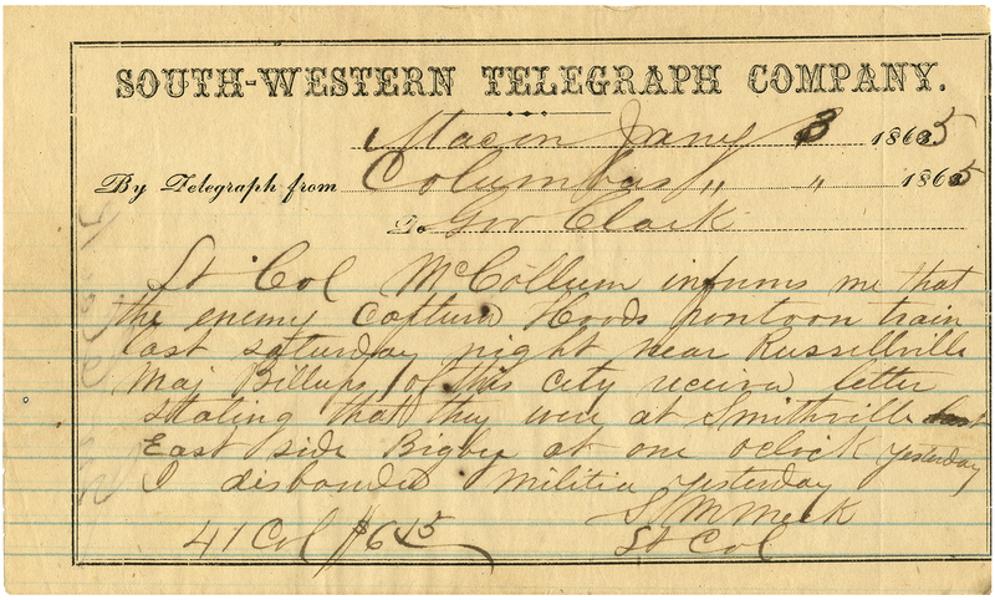 SOUTH-WESTERN TELEGRAPH COMPANY.
Macon Jany 3 1865
By Telegraph from Columbus " " 1865
To Gov Clark
Lt Col McCollum informs me that
the enemy Captured Hoods pontoon train
last saturday night near Russellville
Maj Billups of this City receivd letter
stating that they were at Smithville
East side Bigby at one oclock yesterday
I disbanded militia yesterday
S M Meek
41 Col $6 45 Lt Col